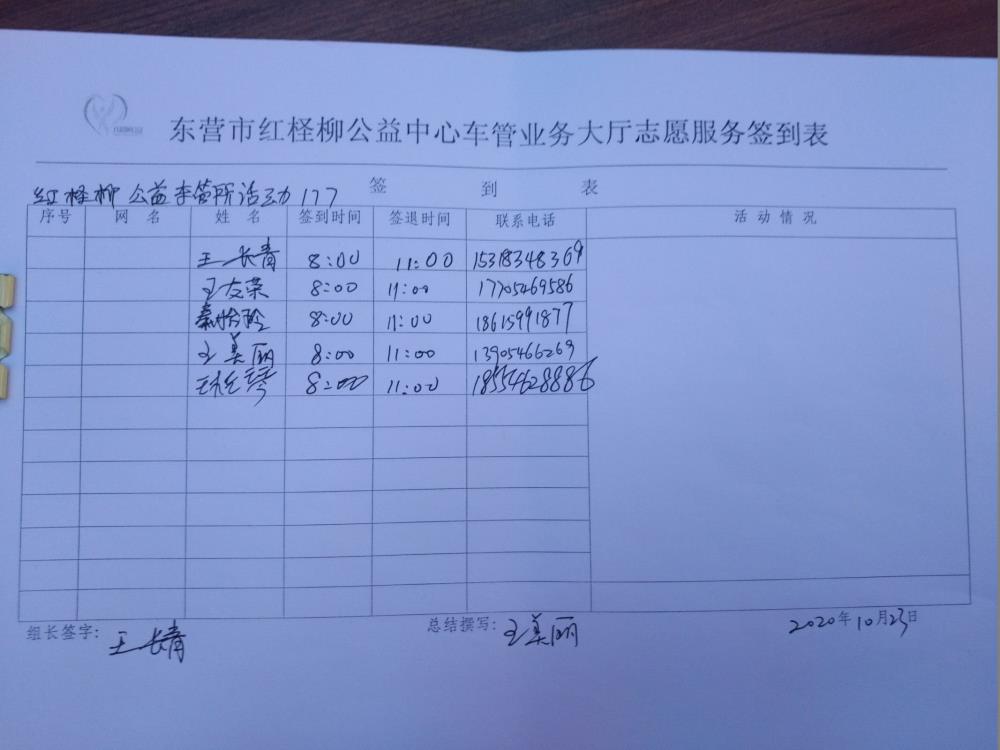 东营市红柽柳公益中心车管业务大厅志愿服务签到表
签到表
红柽柳公益车管所活动177
序号 网名 姓名 签到时间 签退时间 联系电话 活动情况
王长青 8:00 11:00 15318348369
王友荣 8:00 11:00 17705469586
秦怡玲 8:00 11:00 18615991877
王美丽 8:00 11:00 13905466269
8:00 11:00 18554628886
组长签字: 王长青 总结撰写: 王美丽 2020年10月23日